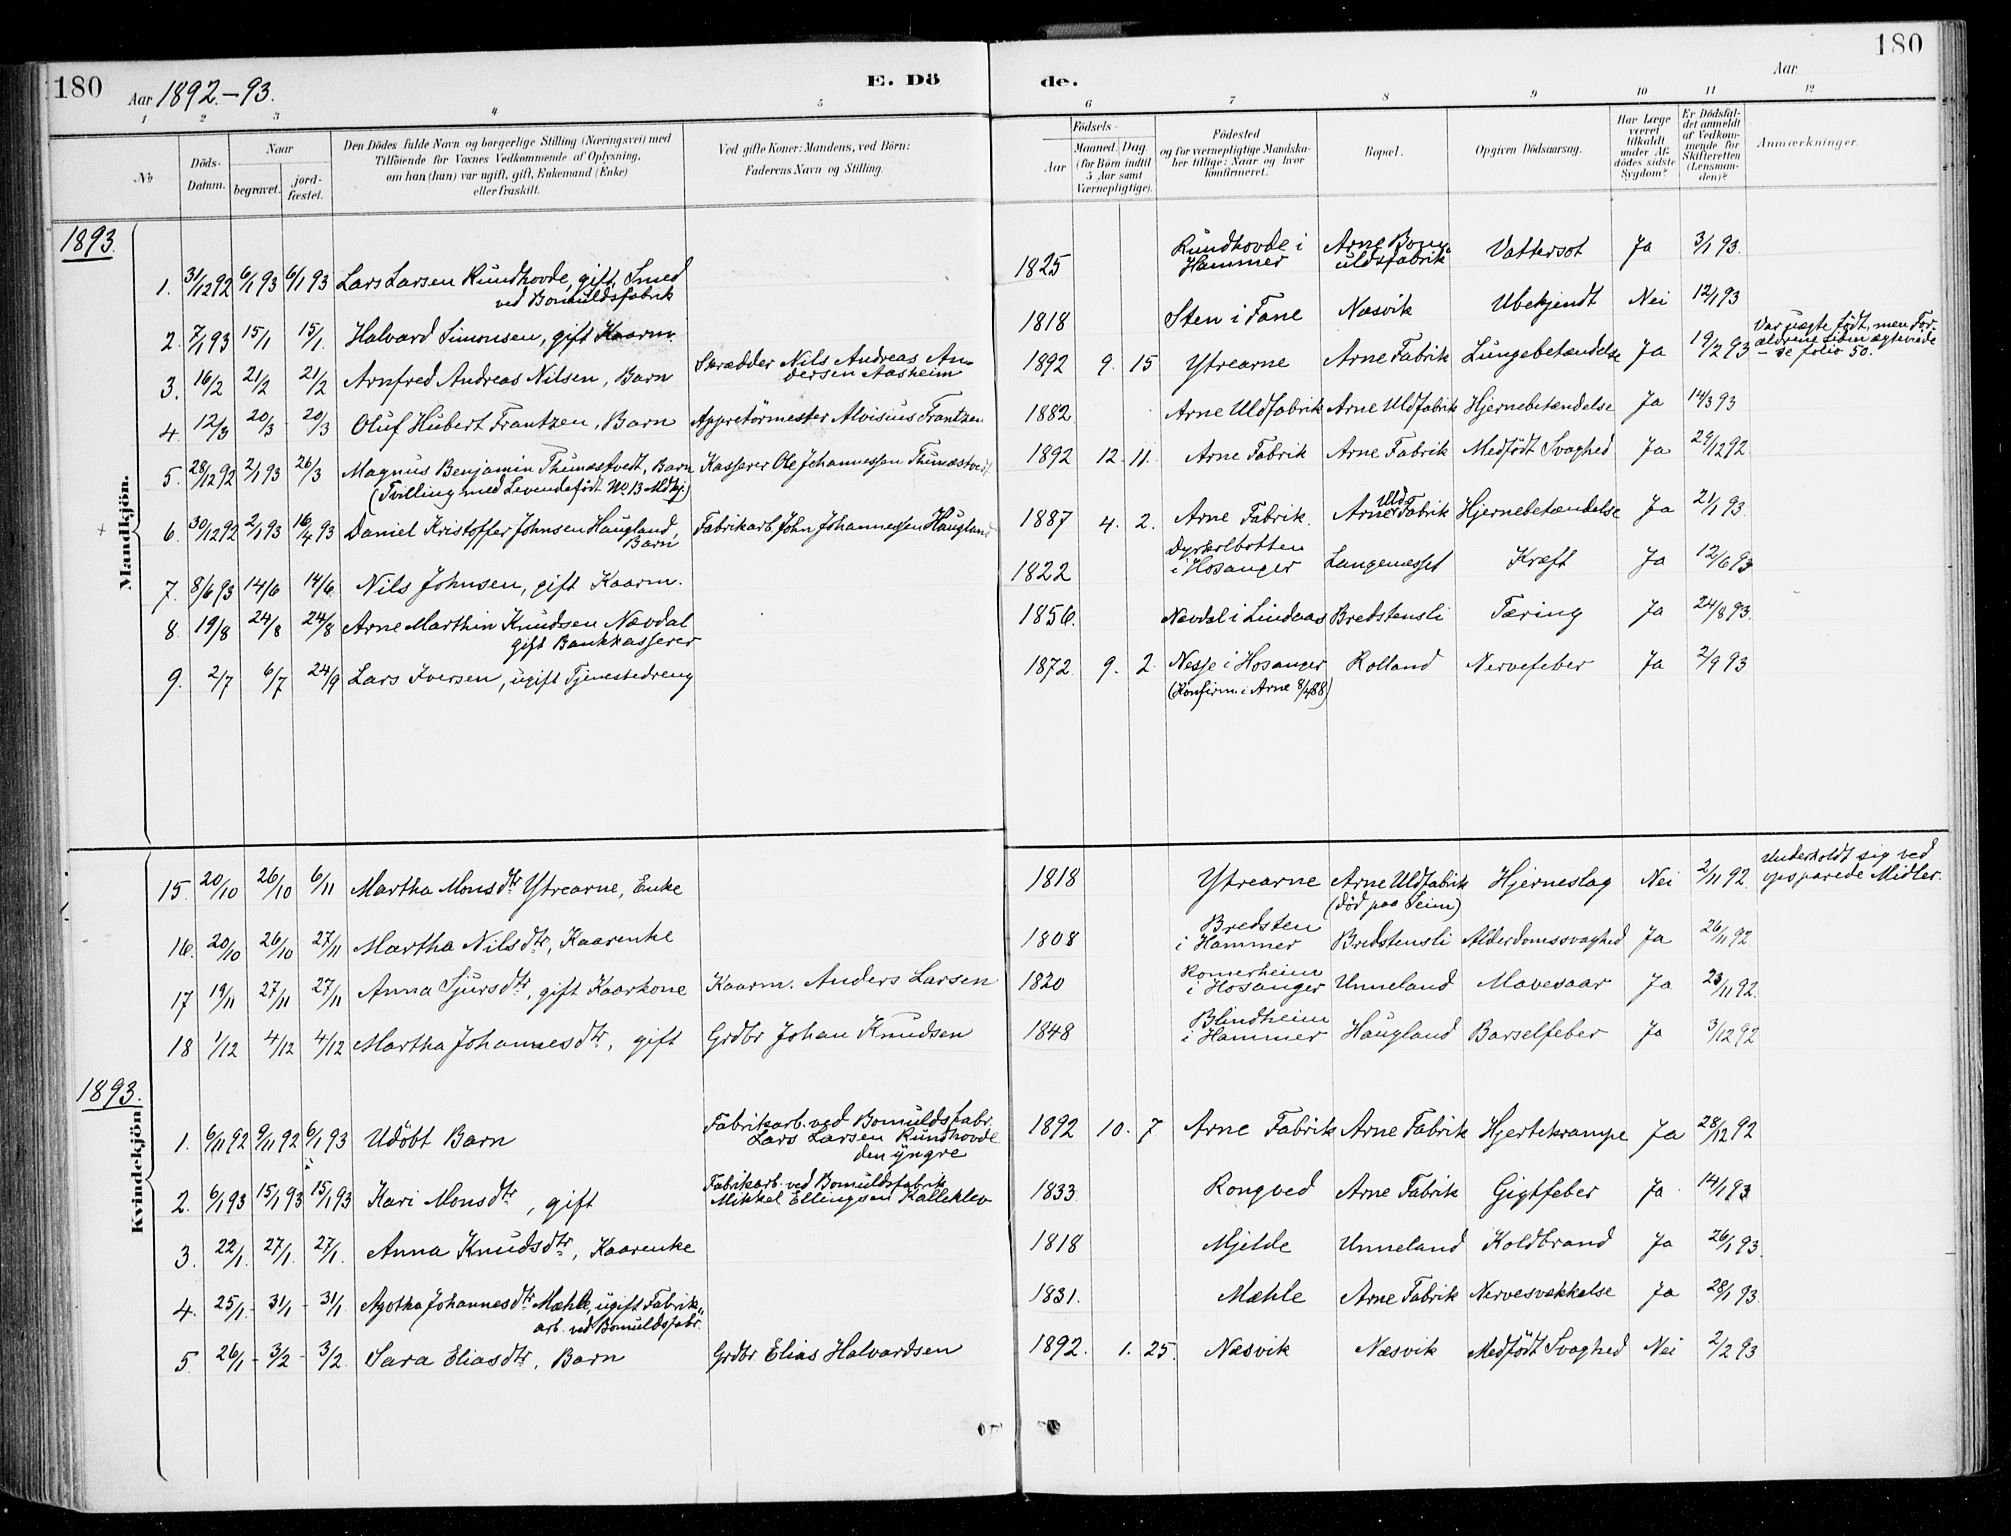 180
Aar 1892.-93.
E. Dö
de.
Aar
180
1 2 3 4 5 6 7 8 9 10 11 12
No
Döds-
Datum.
Naar
begravet.
jord-
fæstet.
Den Dödes fulde Navn og borgerlige Stilling (Næringsvei) med
Tilföiende for Voxnes Vedkommende af Oplysning,
om han (hun) var ugift, gift, Enkemand (Enke)
eller fraskilt.
Ved gifte Koner: Mandens, ved Börn:
Faderens Navn og Stilling.
Födsels-
Aar
Maaned. Dag
(for Börn indtil
5 Aar samt
Værnepligtige).
Födested
og for værnepligtige Mandska-
ber tillige: Naar og hvor
konfirmeret.
Bopæl.
Opgiven Dödsaarsag.
Har Læge
været
tilkaldt
under Af-
dödes sidste
Sygdom?
Er Dödsfal-
det anmeldt
af Vedkom-
mende for
Skifteretten
(Lensman-
den)?
Anmærkninger.
1893.
Mandkjön.
1. 31/12 92 6/1 93 6/1 93 Lars Larsen Rundhovde, gift, Smed
ved Bomuldsfabrik
1825 Rundhovde i
Hammer
Arne Bom-
uldsfabrik
Vattersot Ja 3/1 93.
2. 7/1 93 15/1 15/1. Halvard Simonsen, gift Kaarm. 1818 Sten i Fane Næsvik Ubekjendt Nei 12/1 93
3. 16/2 21/2 21/2 Arnfred Andreas Nilsen, Barn Skrædder Nils Andreas An-
dersen Aasheim
1892 9. 15 Ytrearne Arne Fabrik Lungebetændelse Ja 19/2 93
Var uægte født, men For-
ældrene siden ægteviede
- se folio 50.
4. 12/3 20/3 20/3 Oluf Hubert Frantzen, Barn Appretörmester Alvisius Frantzen 1882 Arne Uldfabrik Arne Uldfabrik Hjernebetændelse Ja 14/3 93
5. 28/12 92 2/1 93 26/3 Magnus Benjamin Thunæstvedt, Barn Kasserer Ole Johannessen Thunæstvedt
(Tvilling med Levendefödt No 13 Mdkj.)
1892 12. 11. Arne Fabrik Arne Fabrik Medfödt Svaghed Ja 29/12 92.
6. 30/12 92 2/1 93 16/4 93 Daniel Kristoffer Johnsen Haugland,
Barn
Fabrikarb. John Johannessen Haugland 1887 4. 2. Arne Fabrik. Arne Uld Fabrik Hjernebetændelse Ja 21/1 93.
7. 8/6 93 14/6 14/6. Nils Johnsen, gift Kaarm. 1822
i Hosanger
Langenæsset Kræft Ja 12/6 93
8. 19/8 24/8 24/8 Arne Marthin Knudsen Nævdal
gift Bankkasserer
1856. Nævdal i Lindaas Bredstensli Tæring Ja 24/8 93.
9. 2/7 6/7 24/9 Lars Iversen, ugift Tjenestedreng 1872 9. 2. Nesje i Hosanger
(Konfirm. i Arne 8/4 88)
Rolland Nervefeber Ja 2/9 93
Kvindekjön
15 20/10 26/10 6/11 Martha Monsdtr Ytrearne, Enke 1818 Ytrearne Arne Uldfabrik
(död paa Seim)
Hjerneslag Nei 2/11 92.
Underholdt sig ved
opsparede Midler.
16. 20/10 26/10 27/11 Martha Nilsdtr, Kaarenke 1808 Bredsten
i Hammer
Bredstensli Alderdomssvaghed Ja 26/11 92.
17 19/11 27/11 27/11 Anna Sjursdtr, gift Kaarkone Kaarm. Anders Larsen 1820 Romerheim
i Hosanger
Unneland Mavesaar Ja 23/11 92.
18 1/12 4/12 4/12 Martha Johannesdtr, gift Grdbr Johan Knudsen 1848 Blindheim
i Hammer
Haugland Barselfeber Ja 3/12 92
1893.
1. 6/11 92 9/11 92 6/1 93 Udöbt Barn Fabrikarb. ved Bomuldsfabr.
Lars Larsen Rundhovde
den yngre
1892 10. 7 Arne Fabrik Arne Fabrik Hjertekrampe Ja 28/12 92
2. 6/1 93 15/1 93 15/1 93 Kari Monsdtr, gift Fabrikarb. ved Bomuldsfabrik
Mikkel Ellingsen Kalleklev
1833. Rongved Arne Fabrik Gigtfeber Ja 14/1 93
3. 22/1. 27/1. 27/1. Anna Knudsdtr, Kaarenke 1818 Mjelde Unneland Koldbrand Ja 26/1 93.
4. 25/1. - 31/1 - 31/1 Agotha Johannesdtr Mæhle, ugift Fabrik-
arb. ved Bomuldsfabr.
1831. Mæhle Arne Fabrik Nervesvækkelse Ja 28/1 93.
5 26/1 - 3/2 - 3/2. Sara Eliasdtr, Barn Grdbr Elias Halvardsen 1892. 1. 25. Næsvik Næsvik Medfödt Svaghed Nei 2/2 93